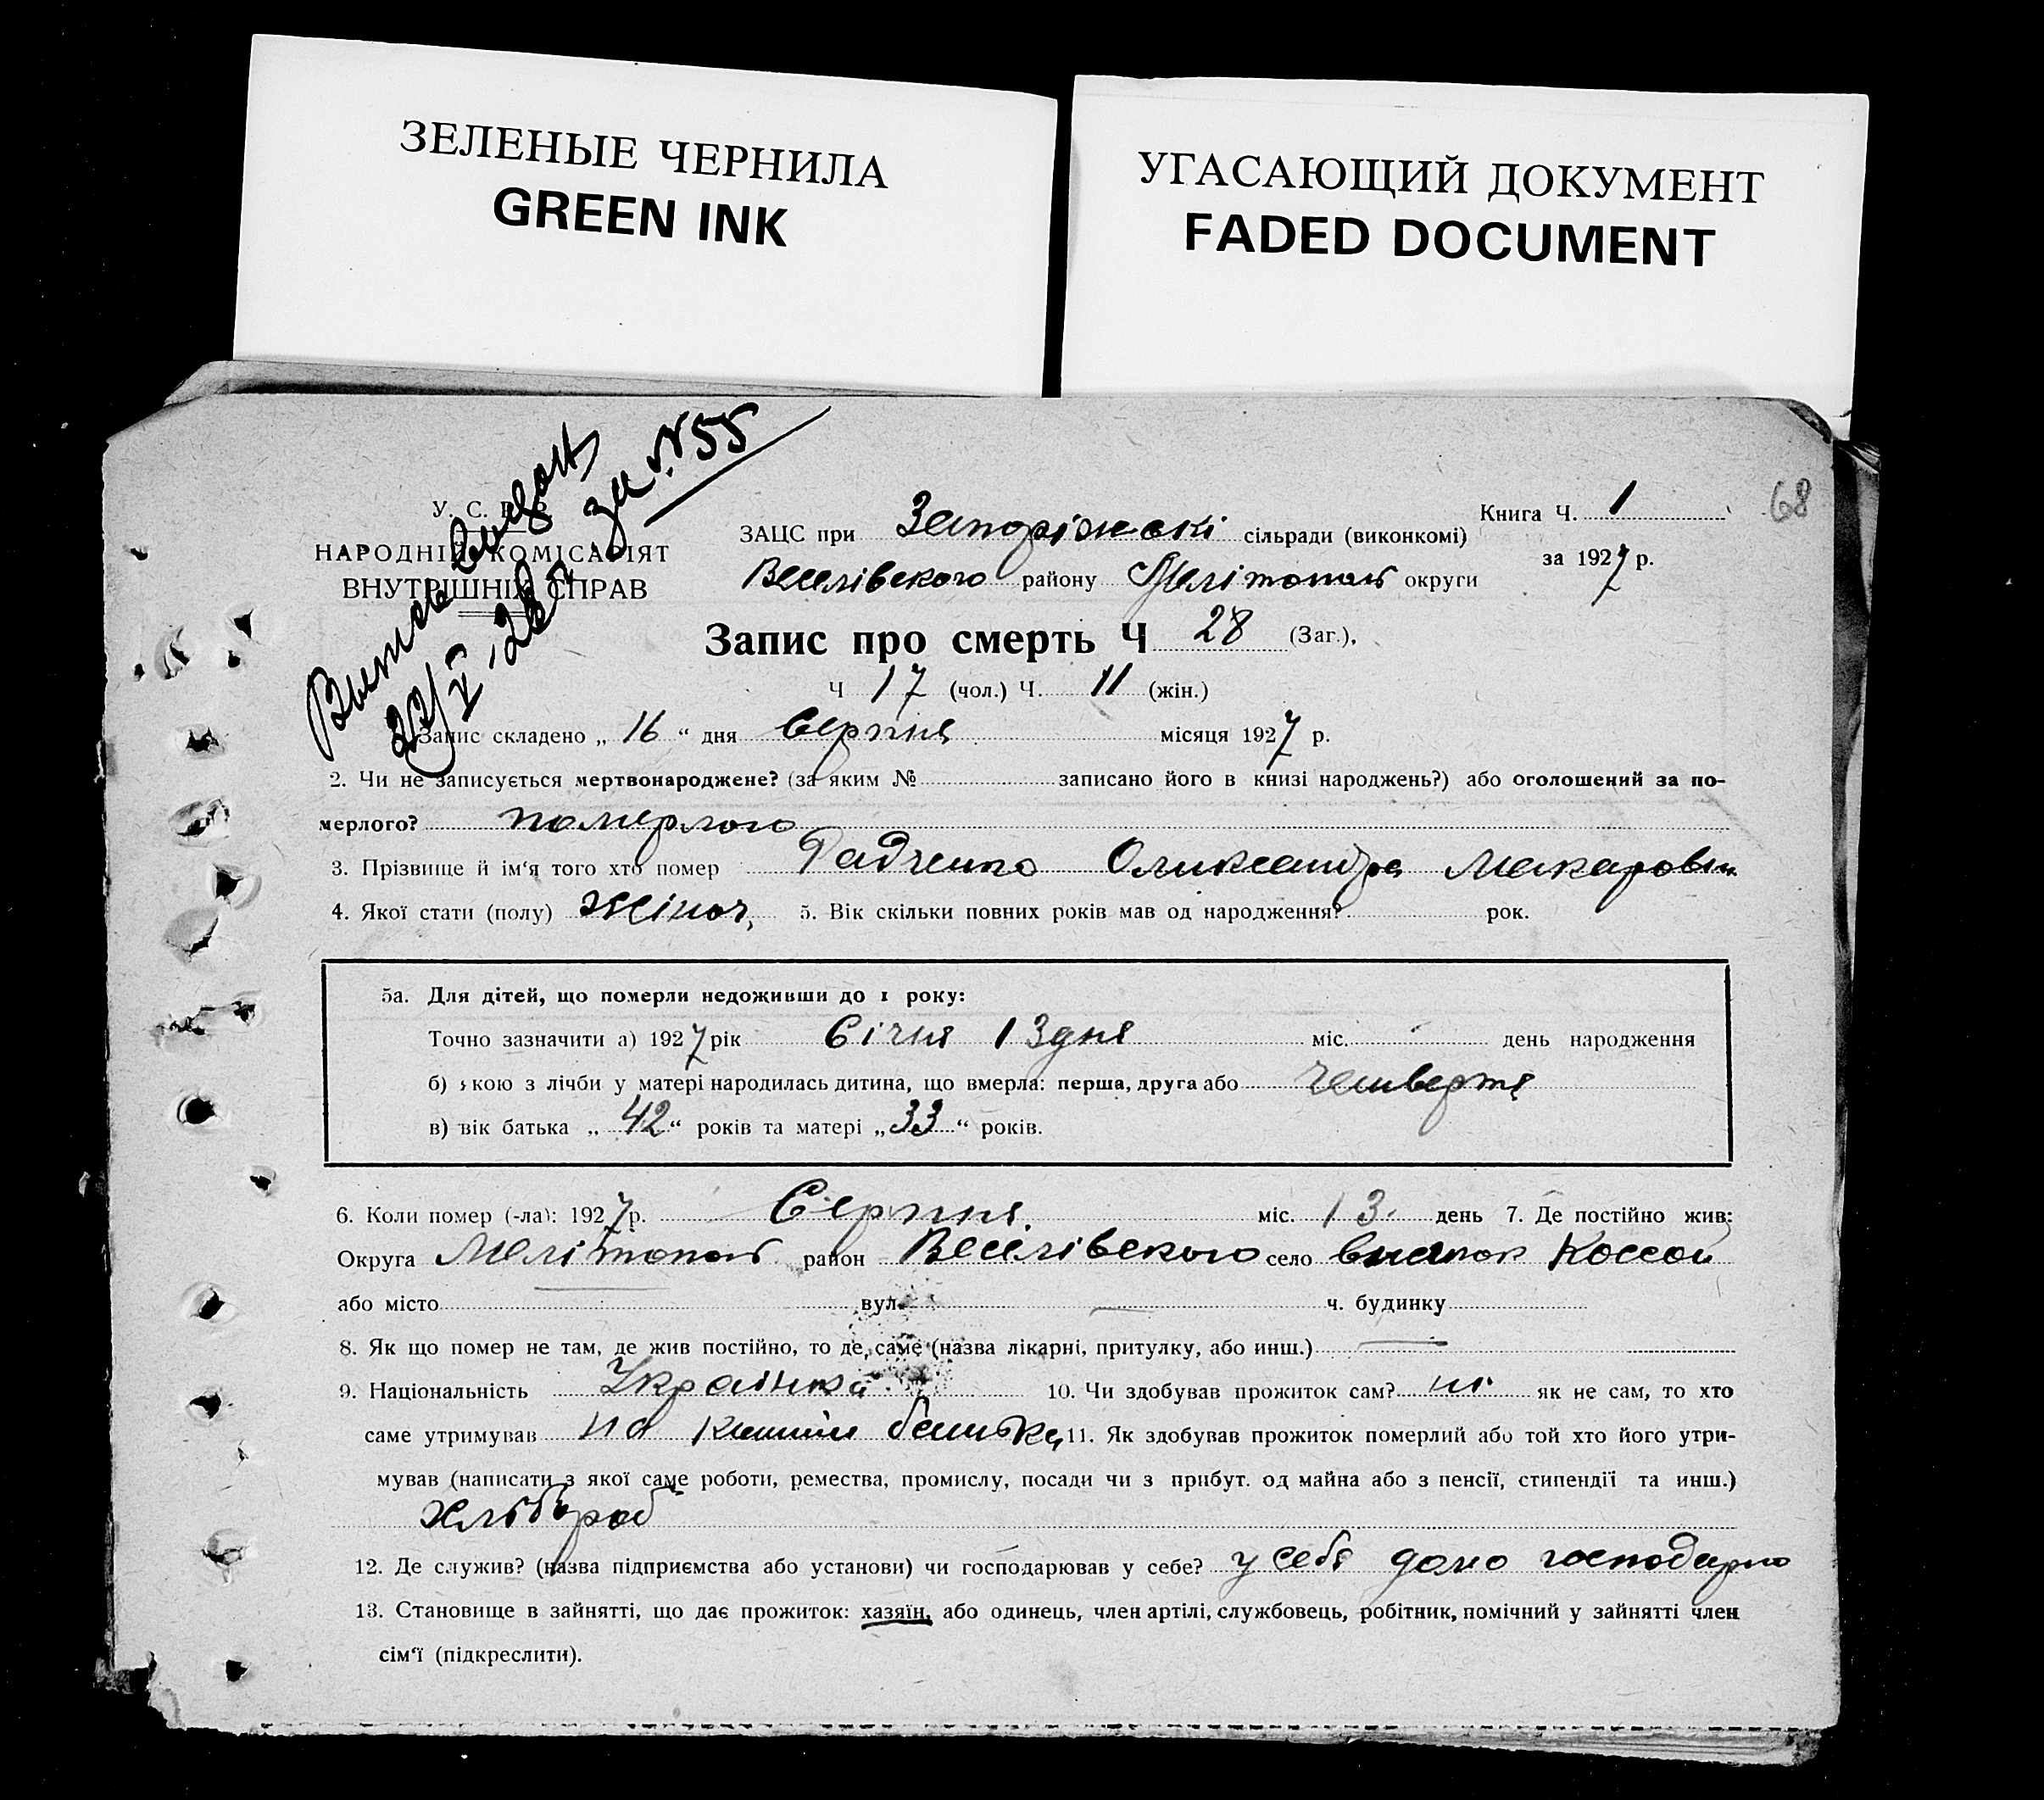 ЗЕЛЕНЫЕ ЧЕРНИЛА
GREEN INK
УГАСАЮЩИЙ ДОКУМЕНТ
FADED DOCUMENT
за №55
68
У. С. Р. Р.
НАРОДНІЙ КОМІСАРІЯТ
ВНУТРІШНІХ СПРАВ
Книга Ч. 1
за 1927 р.
ЗАЦС при Запоріжскі сільради (виконкомі)
Веселівского району Мелітополь округи
Запис про смерть Ч 28 (Заг.),
Ч 17 (чол.) Ч. 11 (жін.)
Запис складено „ 16 “ дня Серпня місяця 1927 р.
2. Чи не записується мертвонароджене? (за яким № записано його в книзі народжень?) або оголошений за по-
мерлого? померлого
3. Прізвище й ім‘я того хто помер Радченко Олександра Макаровн
4. Якої стати (полу) жіноч, 5. Вік скільки повних років мав од народження? рок.
5а. Для дітей, що померли недоживши до 1 року:
Точно зазначити а) 1927 рік Січня 13 дня міс. день народження
б) якою з лічби у матері народилась дитина, що вмерла: перша, друга або четверта
в) вік батька „ 42 “ років та матері „ 33 “ років.
6. Коли помер (-ла): 1927 р. Серпня. міс. 13. день 7. Де постійно жив:
Округа Мелітополь район Веселівского село Коссой
або місто вул. ч. будинку
8. Як що помер не там, де жив постійно, то де, саме (назва лікарні, притулку, або инш.)
9. Національність Українка 10. Чи здобував прожиток сам? ні як не сам, то хто
саме утримував на кошти батька 11. Як здобував прожиток померлий або той хто його утри-
мував (написати з якої саме роботи, ремества, промислу, посади чи з прибут. од майна або з пенсії, стипендії та инш.)
Хлібороб
12. Де служив? (назва підприємства або установи) чи господарював у себе? у себя дома господарно
13. Становище в зайнятті, що дає прожиток: хазяїн, або одинець, член артілі, службовець, робітник, помічний у зайнятті член
сім‘ї (підкреслити).